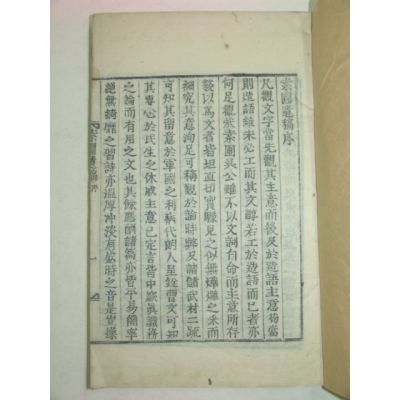 素園遺稿序
凡觀文字當先觀其主意而後及於造語主意苟當
則造語雖未必工而其文醇若工於造語而已者亦
何足觀哉素園吳公雖不以文詞自命而主意所存
發以爲文者皆坦直切實驟見之似無燁燁之采而
細究其意洵足可稱觀於論時弊及論儲武材二疏
可知其留意於軍國之利病代朗人呈銓曹文可知
其專心於民生之休戚主意已定言皆中窾眞識務
之論而有用之文也其餘酬酢諸篇亦皆平易爾
絶無綺靡之習詩亦溫厚冲淡有盛時之音是豈
素園遺稿序